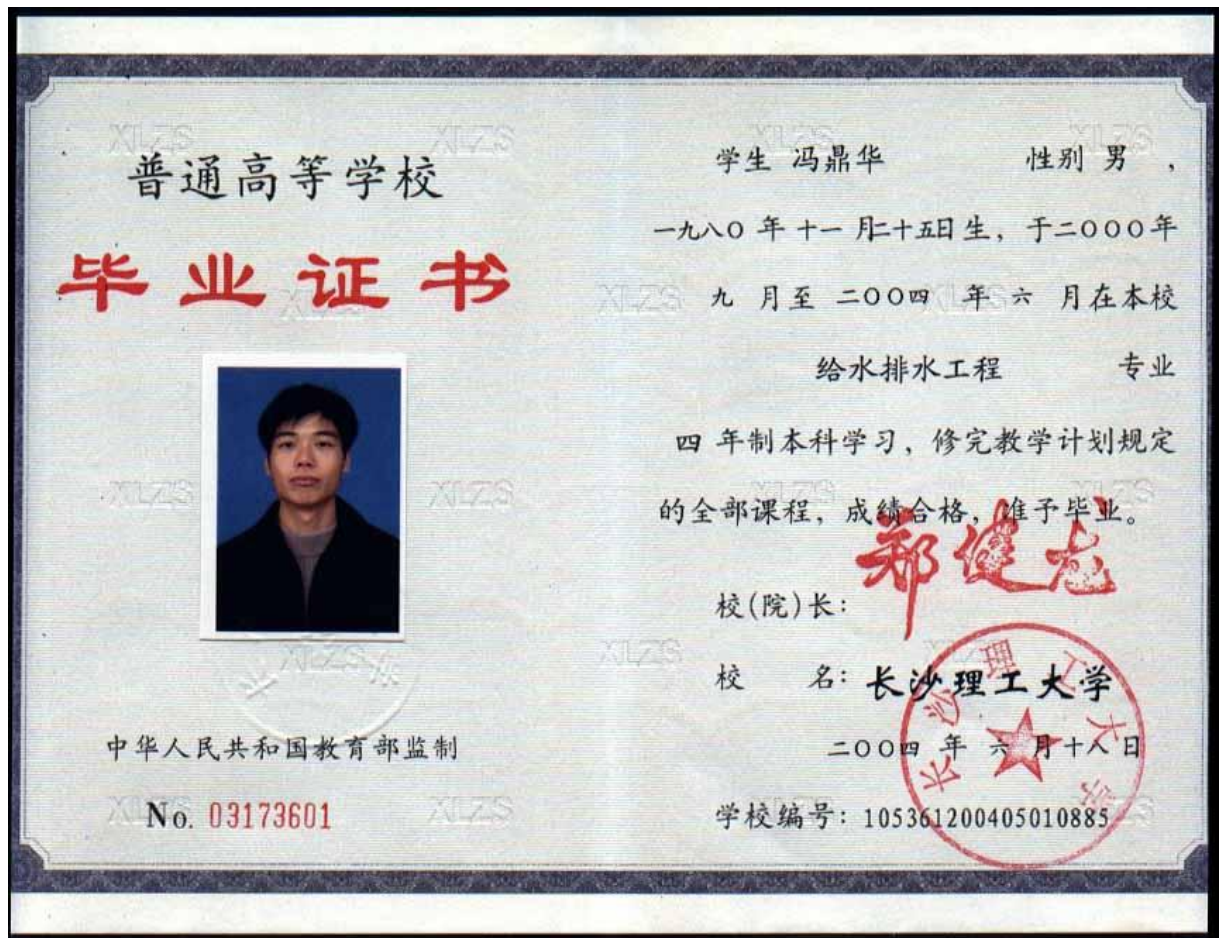 普通高等学校
毕业证书
中华人民共和国教育部监制
No. 03173601
学生 冯鼎华 性别 男 ,
一九八〇 年 十一 月二十五日生, 于二〇〇〇年
九 月至 二〇〇四 年 六 月在本校
给水排水工程 专业
四 年制本科学习, 修完教学计划规定
的全部课程, 成绩合格, 准予毕业。
校(院)长: 郑健龙
校 名: 长沙理工大学
二〇〇四 年 六 月十八日
学校编号: 105361200405010885
长沙理工大学
XLZS